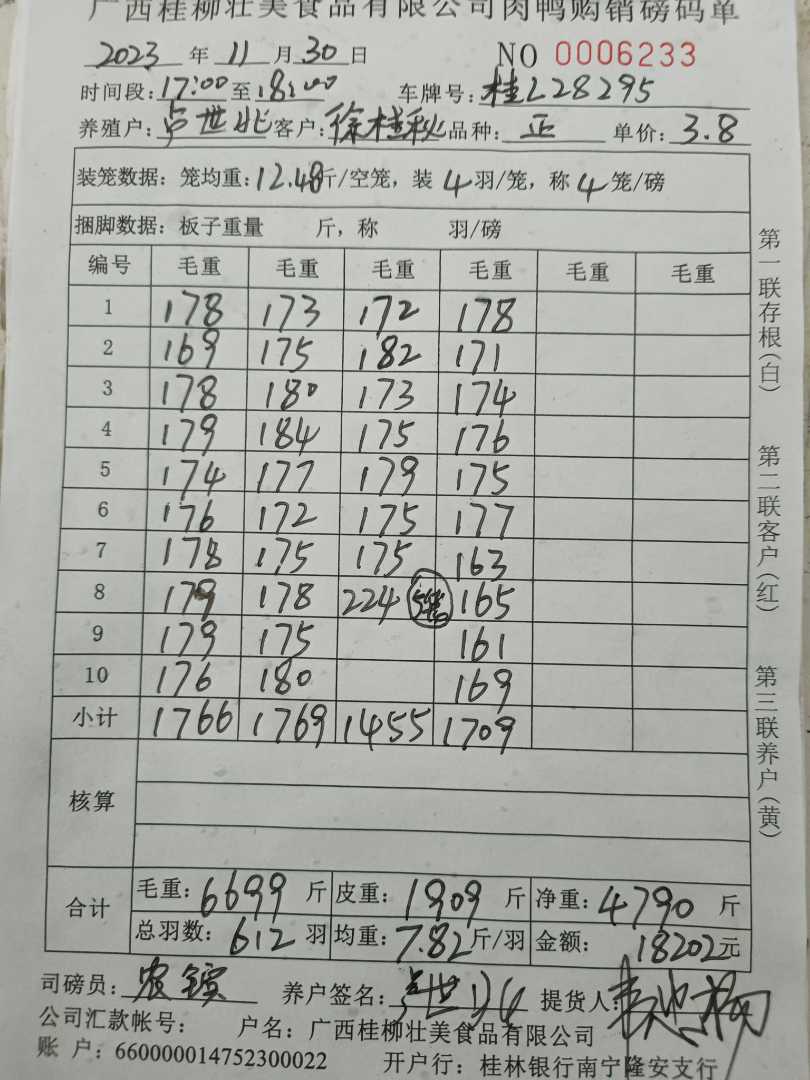 广西桂柳壮美食品有限公司肉鸭购销磅码单
2023 年 11 月 30 日 NO 0006233
时间段: 17:00 至 18:00 车牌号: 桂L28295
养殖户: 卢世兆 客户: 徐桂秋 品种: 正 单价: 3.8
装笼数据: 笼均重: 12.48斤/空笼, 装 4 羽/笼, 称 4 笼/磅
捆脚数据: 板子重量 斤, 称 羽/磅
编号 毛重 毛重 毛重 毛重 毛重 毛重
1 178 173 172 178
2 169 175 182 171
3 178 180 173 174
4 179 184 175 176
5 174 177 179 175
6 176 172 175 177
7 178 175 175 163
8 179 178 224 165
9 179 175 161
10 176 180 169
小计 1766 1769 1455 1709
核算
合计 毛重: 6699 斤 皮重: 1909 斤 净重: 4790 斤
总羽数: 612 羽 均重: 7.82 斤/羽 金额: 18202 元
司磅员: 养户签名: 提货人:
公司汇款帐号: 户名: 广西桂柳壮美食品有限公司
账 户: 660000014752300022 开户行: 桂林银行南宁隆安支行
第一联存根(白)
第二联客户(红)
第三联养户(黄)